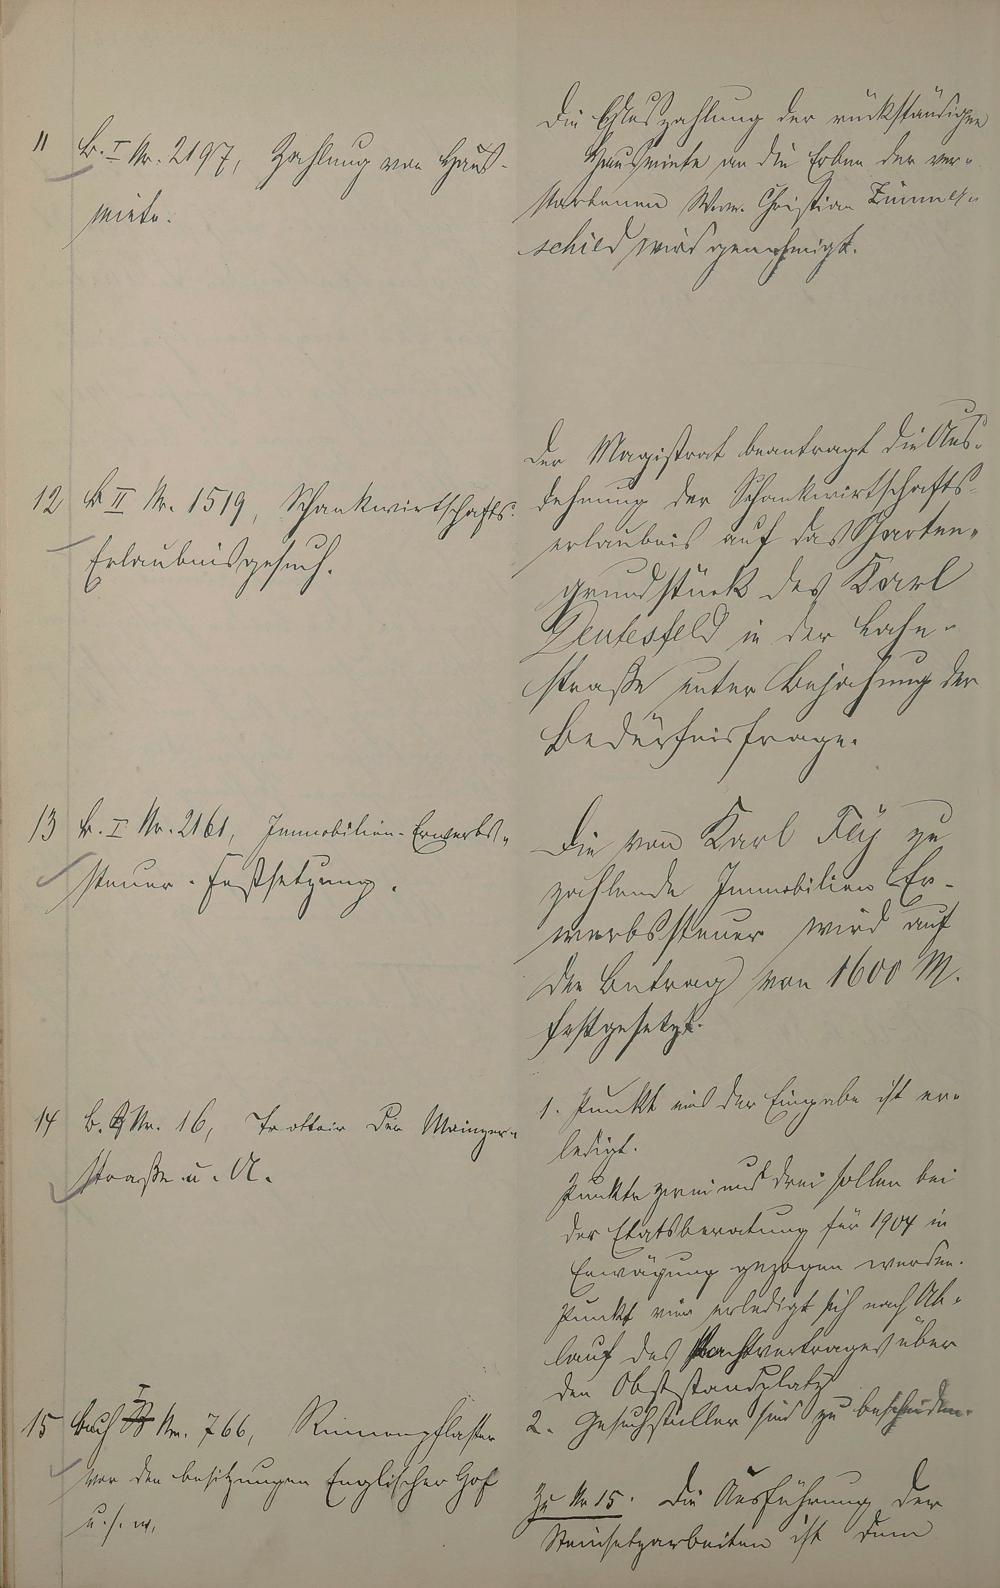 11 B. I Nr. 2197, Zahlung von Haus-
miete.
Die Auszahlung der rückständigen
Hausmiete an die Erben der ver-
storbenen Wwe. Christian Zimmer-
schied wird genehmigt.
12 B II Nr. 1519, Schankwirtschafts-
Erlaubnisgesuch.
Der Magistrat beantragt die Aus-
dehnung der Schankwirtschafts-
erlaubnis auf das Garten-
grundstück des Karl
Deutesfeld in der Lahn-
straße unter Bejahung der
Bedürfnisfrage.
13 B. I Nr. 2161, Immobilien-Erwerbs-
steuer-Festsetzung.
Die von Karl Fey zu
zahlende Immobilien Er-
werbssteuer wird auf
den Betrag von 1600 M.
festgesetzt.
14 B. Nr. 16, Trottoir der Mainzer-
straße u. A.
1. Punkt eins der Eingabe ist er-
ledigt.
Punkte zwei und drei sollen bei
der Etatsberatung für 1904 in
Erwägung gezogen werden.
Punkt vier erledigt sich nach Ab-
lauf des Pachtvertrages über
den Obststandplatz
2. Gesuchsteller sind zu bescheiden.
15 Buch I Nr. 766, Rinnenpflaster
vor den Besitzungen Englischer Hof
u. s. w.
Zu Nr 15. Die Ausführung der
Steinsetzarbeiten ist dem